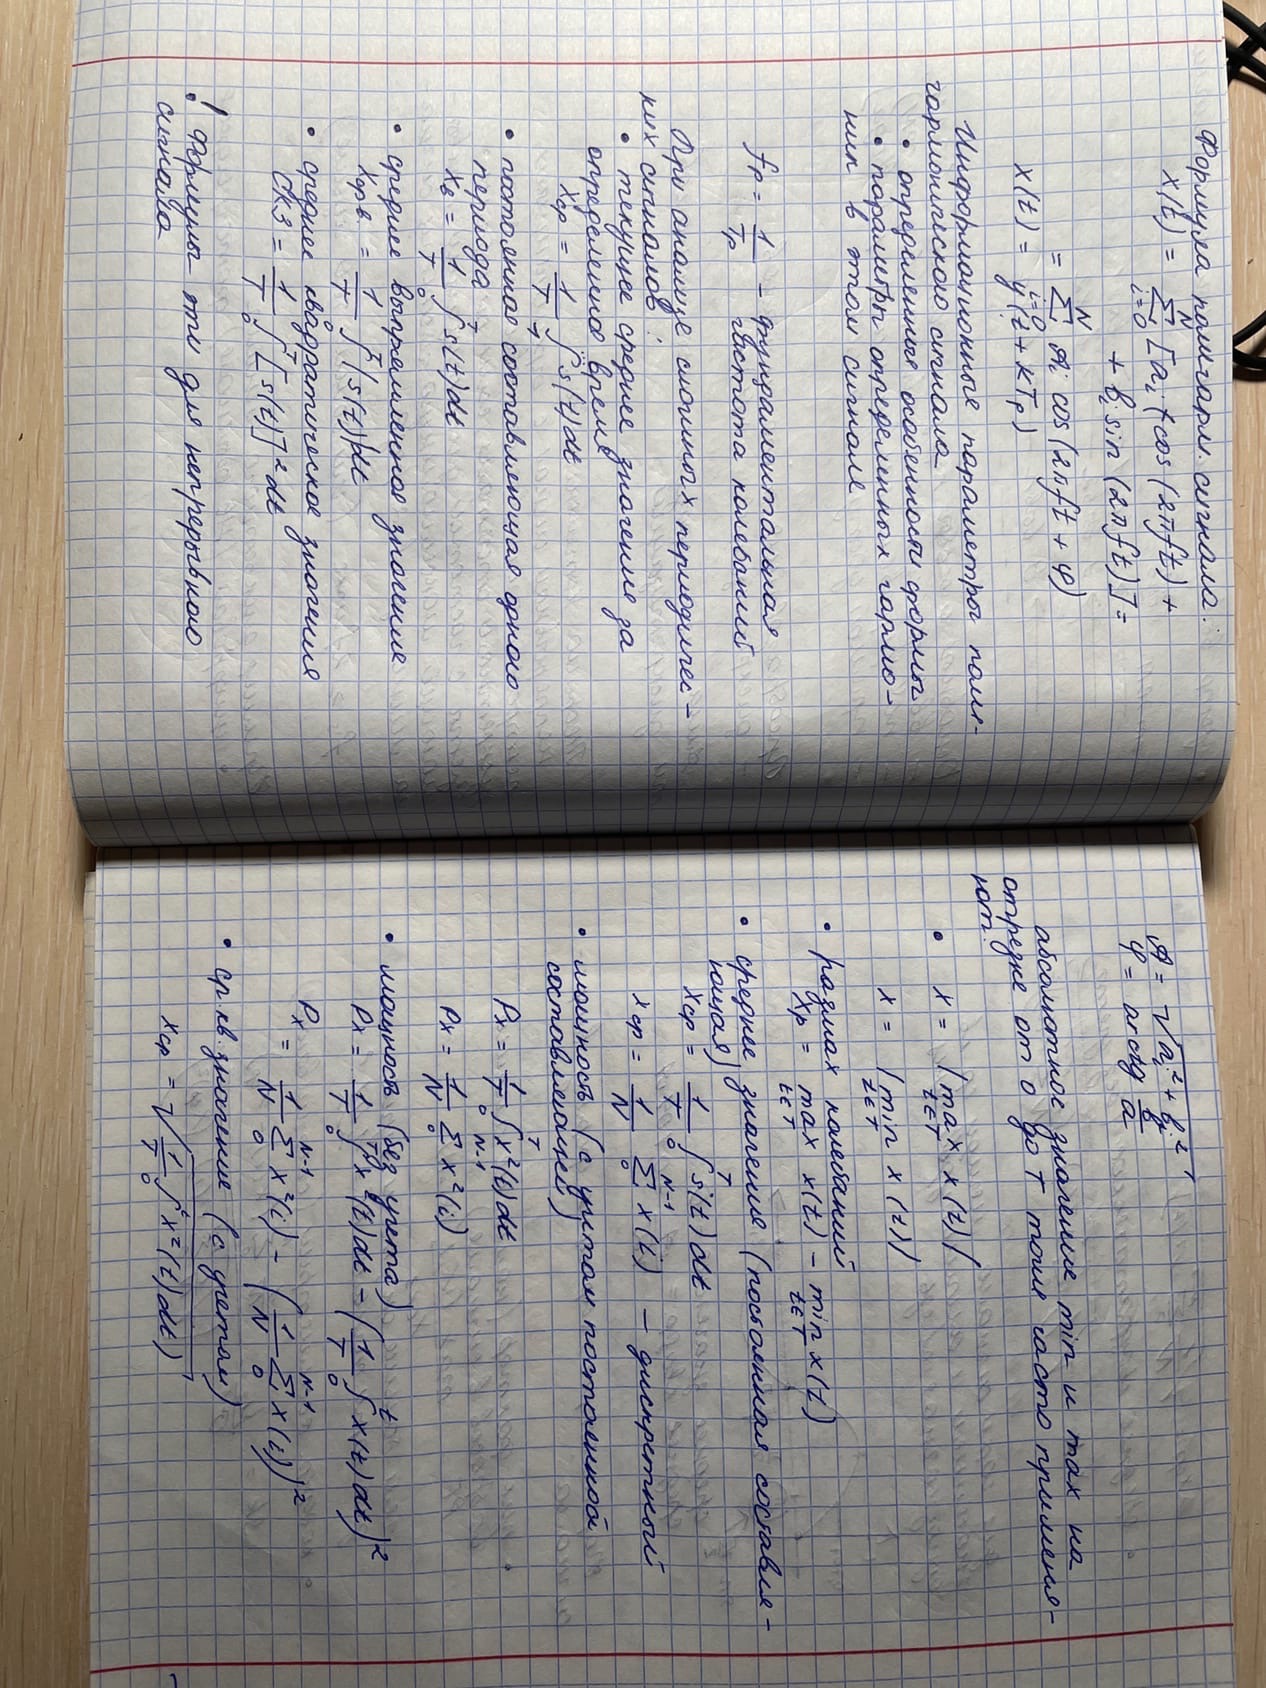 Формула полигарм. сигнала.
x(t) = Σ_{i=0}^{N} [a_i + cos (2πft) +
+ b_i sin (2πft)] =
= Σ_{i=0}^{N} A_i cos (2πft + φ)
x(t) = y(t + kTp)
Информационные параметры поли-
гармонического сигнала
• определенные особенности формы
• параметры определенных гармо-
ник в этом сигнале
fp = 1/Tp – фундаментальная
частота колебаний
При анализе сложных периодичес-
ких сигналов :
• текущее среднее значение за
определенное время
Xср = 1/T ∫ s(t)dt
• постоянная составляющая одного
периода
Xв = 1/T ∫_0^T s(t)dt
• среднее выпрямленное значение
Xср в. = 1/T ∫_0^T |s(t)|dt
• среднее квадратическое значения
СКЗ = 1/T ∫_0^T [s(t)]² dt
! Формулы эти для непрерывного
сигнала
A = √(a_i² + b_i²)
φ = arctg b/a
абсолютное значение min и max на
отрезке от 0 до T тоже часто применя-
ют.
• x = |max_{t∈T} x(t)|
x = |min_{t∈T} x(t)|
• размах колебаний
Xp = max_{t∈T} x(t) – min_{t∈T} x(t)
• среднее значение (постоянная составля-
ющая)
Xср = 1/T ∫_0^T s(t) dt
Xср = 1/N Σ_0^{N-1} x(i) – дискретный
• мощность (с учетом постоянной
составляющей)
Px = 1/T ∫_0^T x²(t)dt
Px = 1/N Σ_0^{N-1} x²(i)
• мощность (без учета)
Px = 1/T ∫_0^T x²(t)dt – (1/T ∫_0^t x(t) dt)²
Px = 1/N Σ_0^{N-1} x²(i) – (1/N Σ_0^{N-1} x(i))²
• ср.кв. значение (с учетом)
xср = √(1/T ∫_0^t x²(t) dt)